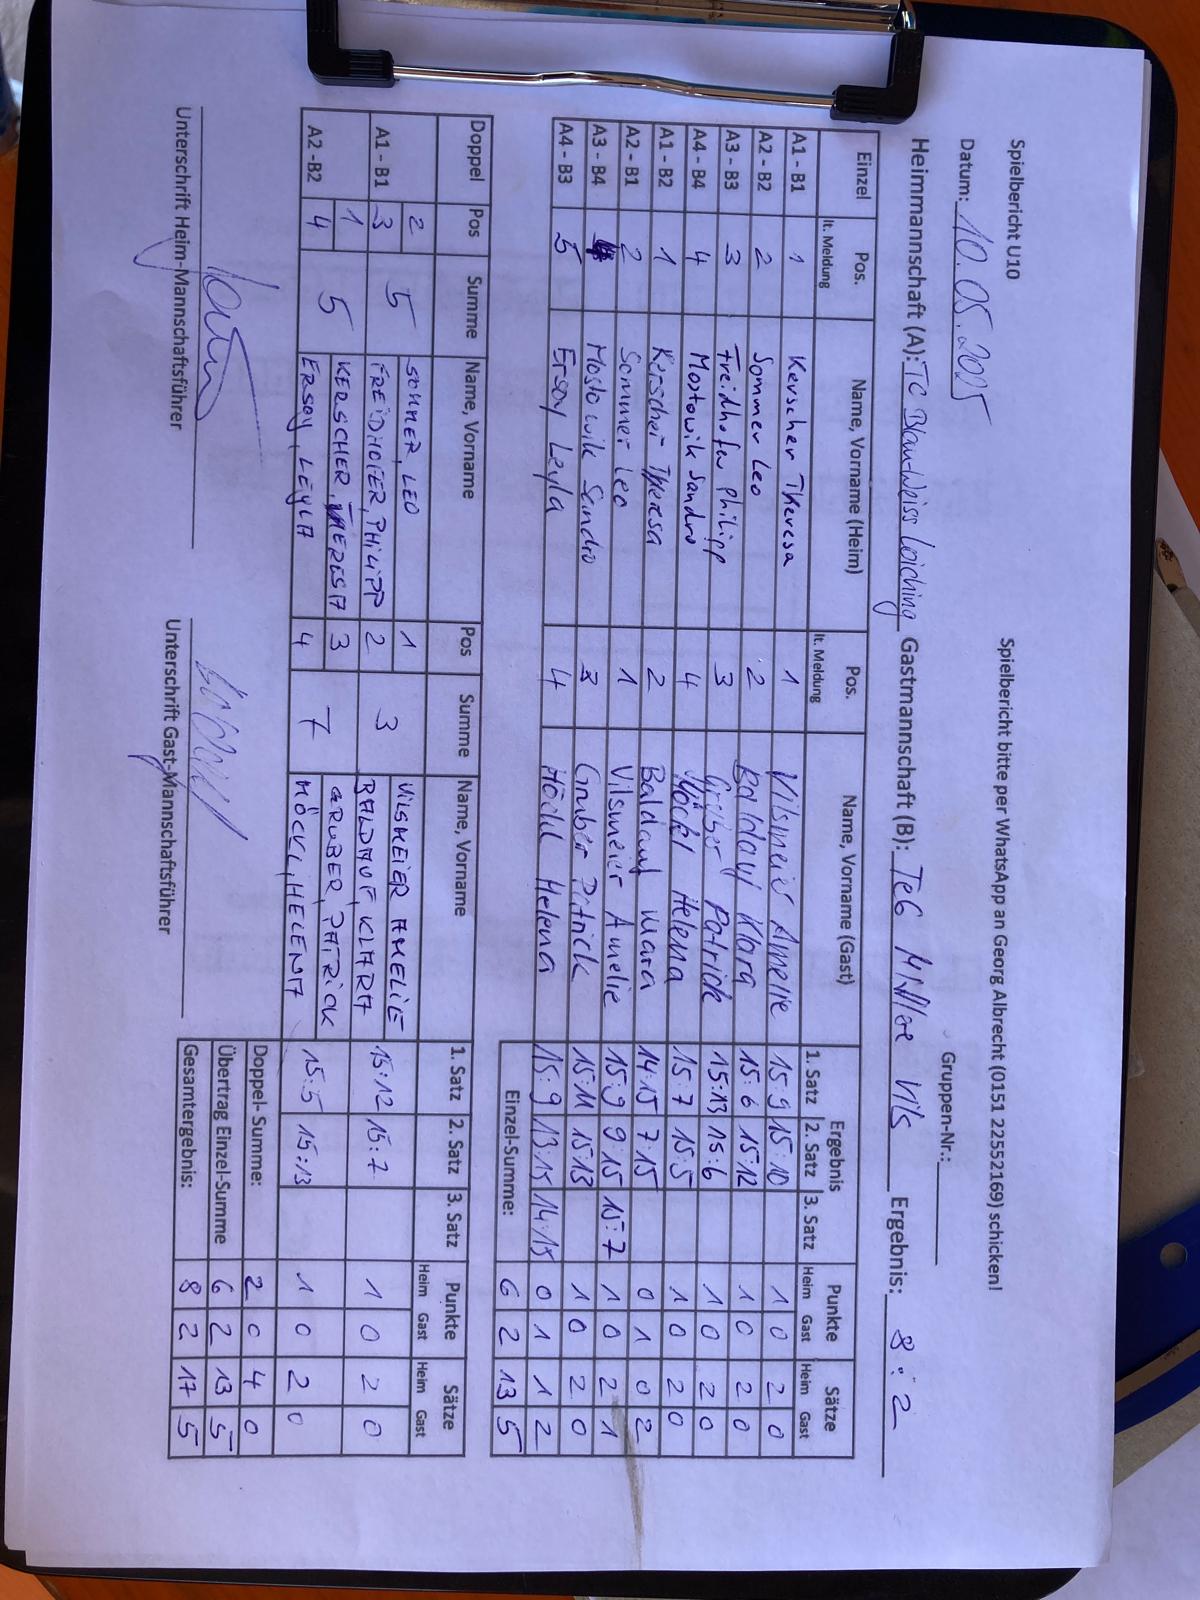 Spielbericht U10 Spielbericht bitte per WhatsApp an Georg Albrecht (0151 22552169) schicken!
Datum: 10.05.2025 Gruppen-Nr.:
Heimmannschaft (A): TC Blau-Weiss Loiching Gastmannschaft (B): TeG Mittlere Vils Ergebnis: 8 : 2
Einzel Pos. Name, Vorname (Heim) Pos. Name, Vorname (Gast) Ergebnis Punkte Sätze
lt. Meldung lt. Meldung 1. Satz 2. Satz 3. Satz Heim Gast Heim Gast
A1 - B1 1 Kerscher Theresa 1 Vilsmeier Amelie 15:9 15:10 1 0 2 0
A2 - B2 2 Sommer Leo 2 Baldauf Klara 15:6 15:12 1 0 2 0
A3 - B3 3 Freidhofer Philipp 3 Gruber Patrick 15:13 15:6 1 0 2 0
A4 - B4 4 Mostowik Sandro 4 Höckl Helena 15:7 15:5 1 0 2 0
A1 - B2 1 Kerscher Theresa 2 Baldauf 14:15 7:15 0 1 0 2
A2 - B1 2 Sommer Leo 1 Vilsmeier Amelie 15:9 9:15 15:7 1 0 2 1
A3 - B4 Mostowik Sandro 3 Gruber Patrick 15:11 15:13 1 0 2 0
A4 - B3 5 Ersoy, Leyla 4 Höckl Helena 15:9 13:15 14:15 0 1 1 2
Einzel-Summe: 6 2 13 5
Doppel Pos Summe Name, Vorname Pos Summe Name, Vorname 1. Satz 2. Satz 3. Satz Punkte Sätze
Heim Gast Heim Gast
A1 - B1 2 5 SOMMER, LEO 1 3 VILSMEIER AMELIE 15:12 15:7 1 0 2 0
3 FREIDHOFER, PHILIPP 2 BALDAUF, KLARA
A2 -B2 1 5 KERSCHER, THERESA 3 7 GRUBER, PATRICK 15:5 15:13 1 0 2 0
4 ERSOY, LEYLA 4 HÖCKL, HELENA
Doppel- Summe: 2 0 4 0
Übertrag Einzel-Summe 6 2 13 5
Gesamtergebnis: 8 2 17 5
Unterschrift Heim-Mannschaftsführer Unterschrift Gast-Mannschaftsführer